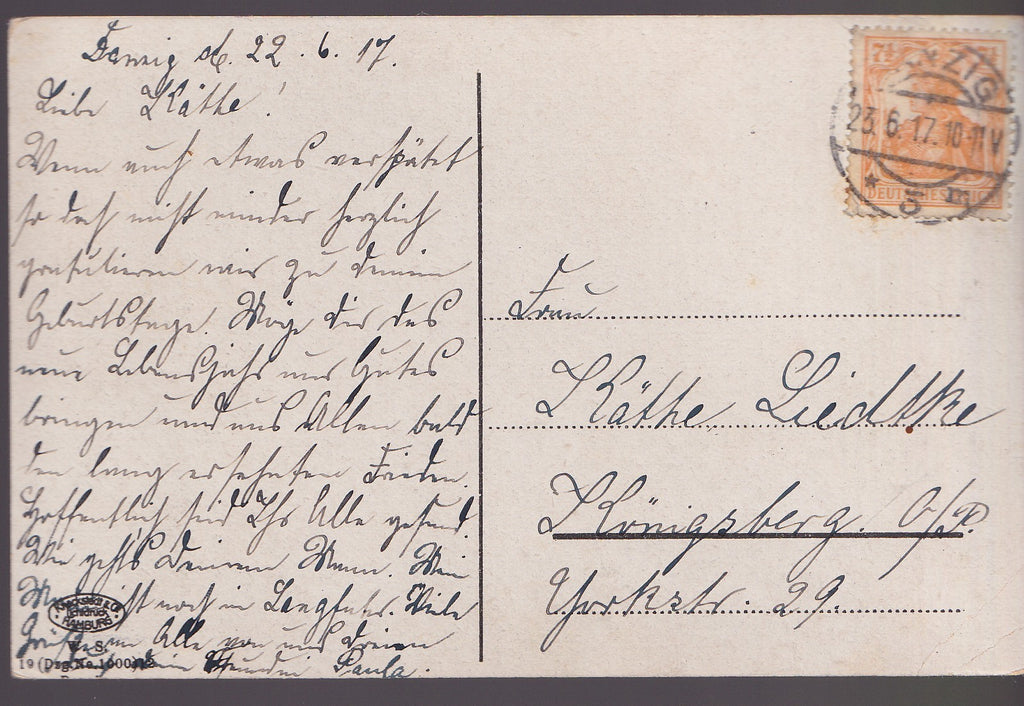 Danzig d. 22.6.17.
Liebe Käthe!
Wenn auch etwas verspätet
so doch nicht minder herzlich
gratulieren wir zu deinem
Geburtstage. Möge dir das
neue Lebensjahr nur Gutes
bringen und uns Allen bald
den lang ersehnten Frieden.
Hoffentlich seid Ihr Alle gesund.
Wie gehts Deinem Mann. Mein
ist noch in Langfuhr. Viele
Grüße an Alle von uns Dreien
Deine Freundin Paula.
7½ 7½
DEUTSCHES REICH
DANZIG
23.6.17.10-11V
* 5 m
Frau
Käthe Liedtke
Königsberg. O/P.
Yorkstr. 29.
HAMBURG
19 (Dzg. No. 1000)